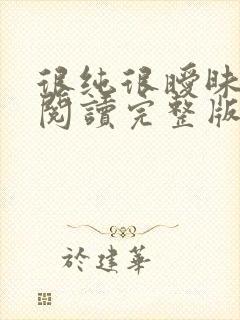 很純很曖昧
閱讀完整版
於建華